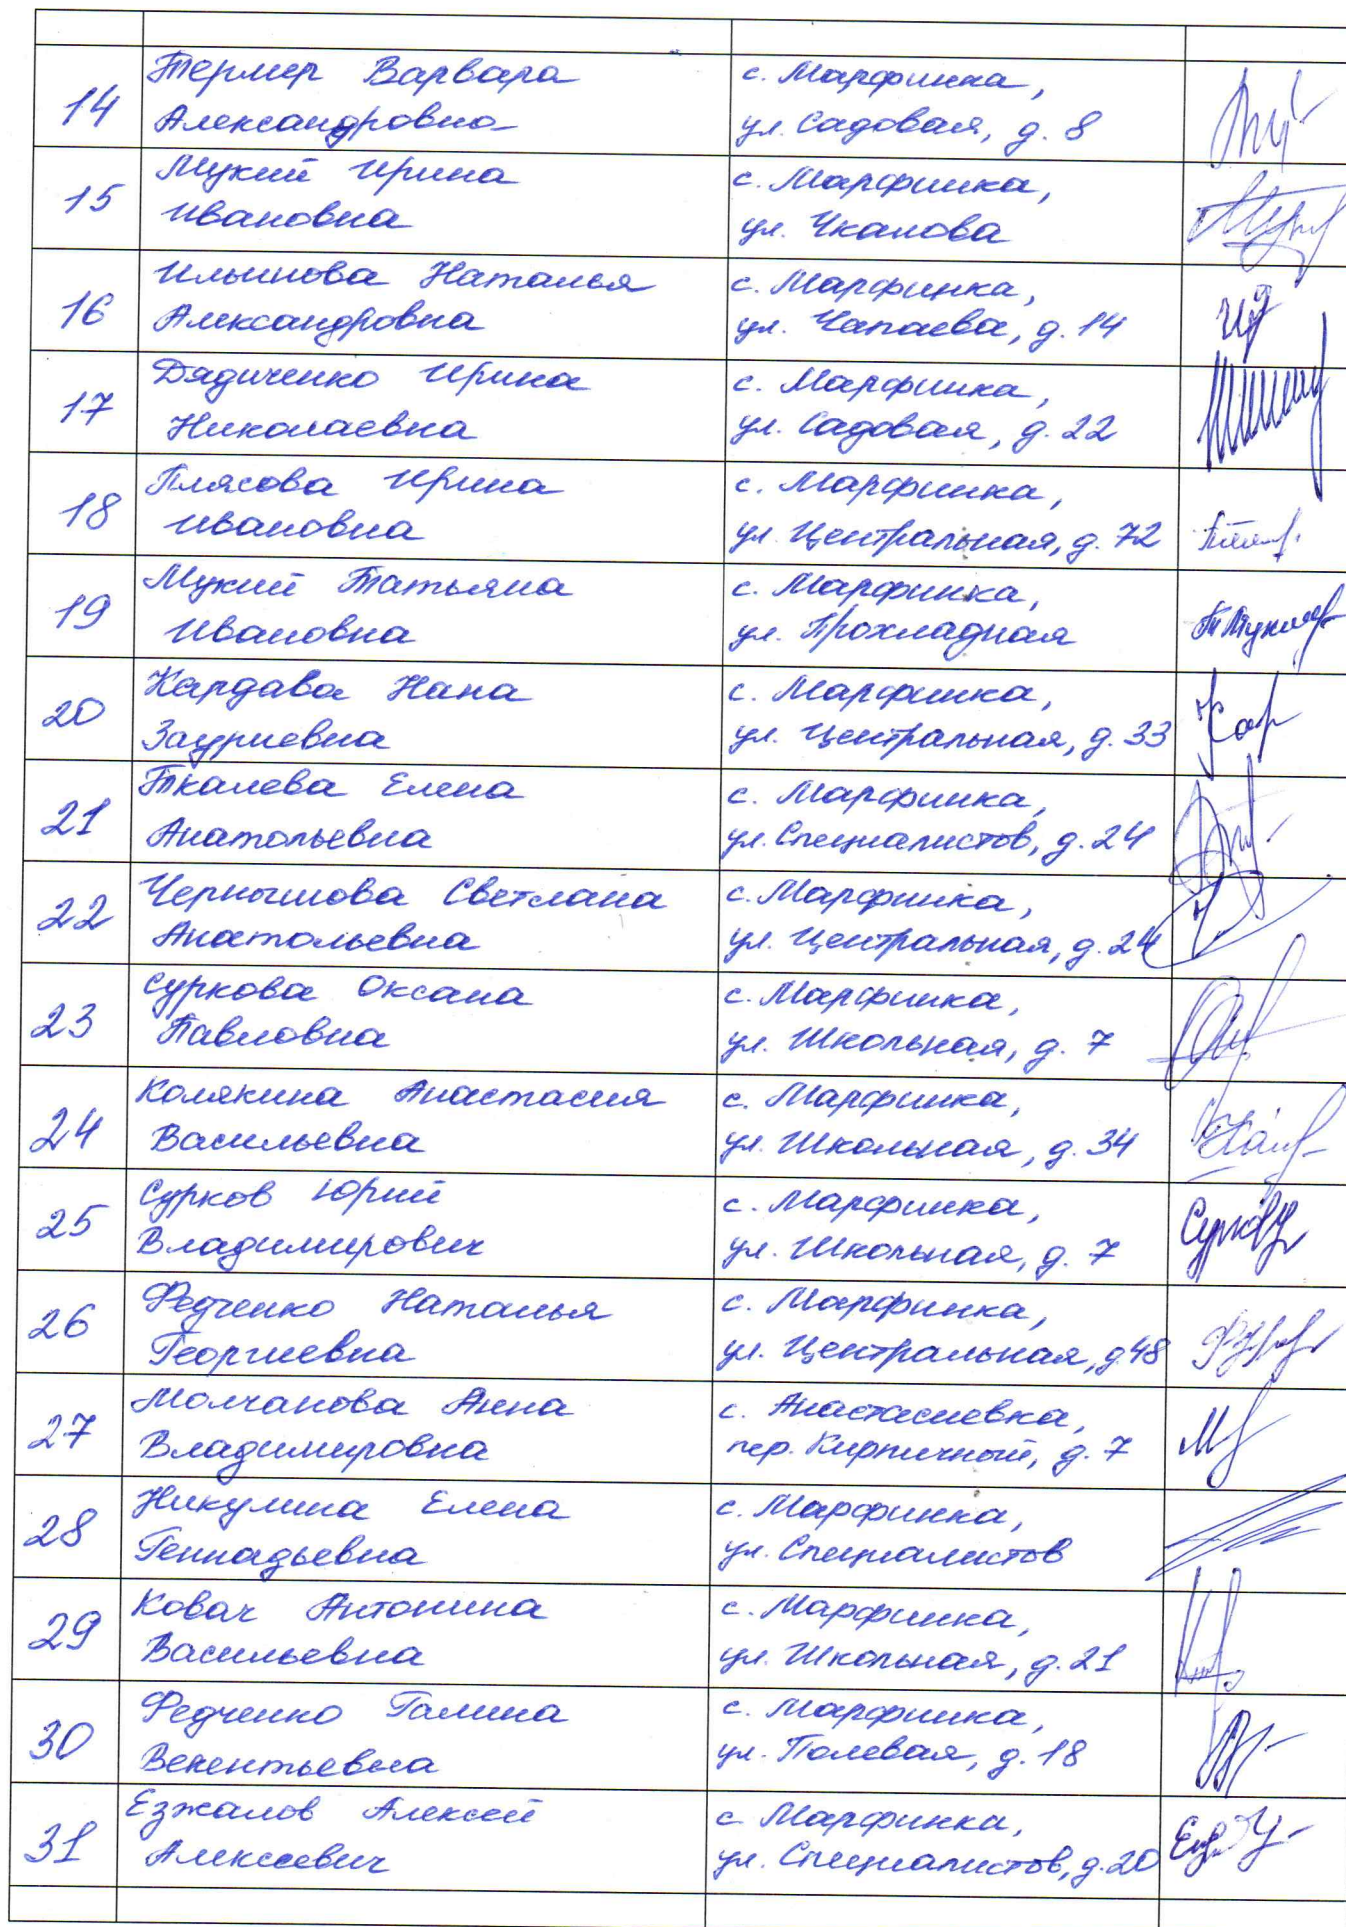 14
Термер Варвара
Александровна
с. Марфинка,
ул. Садовая, д. 8
15
Мукий Ирина
Ивановна
с. Марфинка,
ул. Чкалова
16
Ильинова Наталья
Александровна
с. Марфинка,
ул. Чапаева, д. 14
17
Дядиченко Ирина
Николаевна
с. Марфинка,
ул. Садовая, д. 22
18
Плясова Ирина
Ивановна
с. Марфинка,
ул. Центральная, д. 72
19
Мукий Татьяна
Ивановна
с. Марфинка,
ул. Прохладная
20
Кардава Нана
Зауриевна
с. Марфинка,
ул. Центральная, д. 33
21
Ткалева Елена
Анатольевна
с. Марфинка,
ул. Специалистов, д. 24
22
Чернышова Светлана
Анатольевна
с. Марфинка,
ул. Центральная, д. 24
23
Суркова Оксана
Павловна
с. Марфинка,
ул. Школьная, д. 7
24
Колякина Анастасия
Васильевна
с. Марфинка,
ул. Школьная, д. 34
25
Сурков Юрий
Владимирович
с. Марфинка,
ул. Школьная, д. 7
26
Федченко Наталья
Георгиевна
с. Марфинка,
ул. Центральная, д 48
27
Молчанова Анна
Владимировна
с. Анастасиевка,
пер. Кирпичный, д. 7
28
Никулина Елена
Геннадьевна
с. Марфинка,
ул. Специалистов
29
Ковач Антонина
Васильевна
с. Марфинка,
ул. Школьная, д. 21
30
Федченко Галина
Векентьевна
с. Марфинка,
ул. Полевая, д. 18
31
Езжалов Алексей
Алексеевич
с. Марфинка,
ул. Специалистов, д. 20